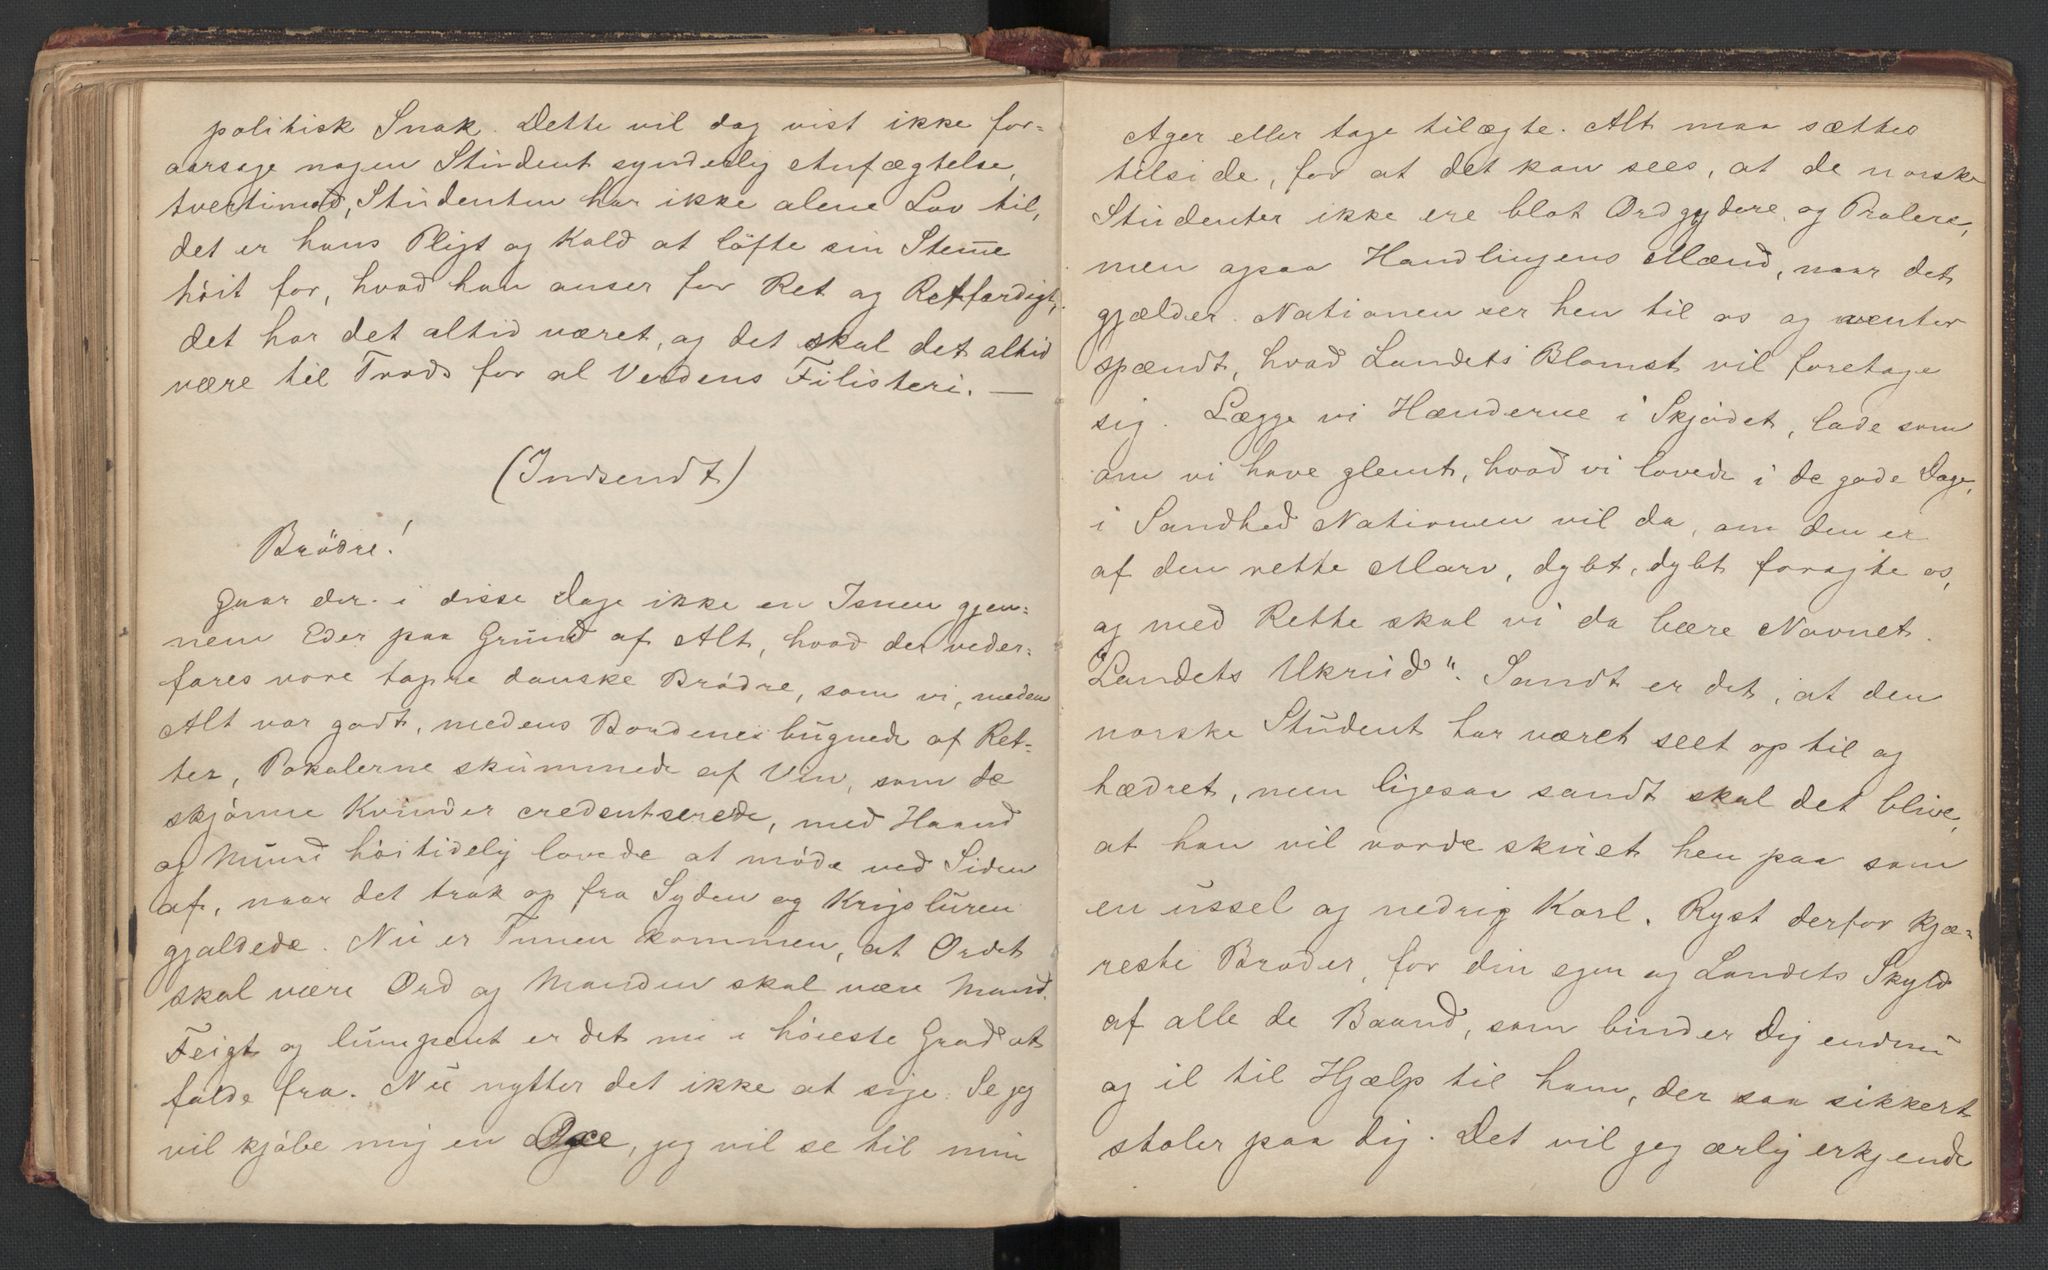 politisk Snak. Dette vil dog vist ikke for-
aarsage nogen Student synderlig Anfægtelse,
tvertimod, Studenten har ikke alene Lov til,
det er hans Pligt og Kald at löfte sin Stem̄e
höit for, hvad han anser for Ret og Retfærdigt,
det har det altid været, og det skal det altid
være til Trods for al Verdens Filisteri. —
(Indsendt)
Brödre!
Gaar der i disse Dage ikke en Isnen gjen-
nem Eder paa Grund af Alt, hvad der veder-
fares vore tapre danske Brödre, som vi, medens
Alt var godt, medens Bordene bugnede af Ret-
ter, Pokalerne skummede af Vin, som de
skjönne Kvinder credentserede, med Haand
og Mund höitidelig lovede at möde ved Siden
af, naar det trak op fra Syden og Krigsluren
gjaldede. Nu er Timen kommen, at Ordet
skal være Ord og Manden skal være Mand.
Feigt og lumpent er det nu i höieste Grad at
falde fra. Nu nytter det ikke at sige: Se jeg
vil kjöbe mig en Oxe, jeg vil se til min
Ager eller tage tilægte. Alt maa sættes
tilside, for at det kan sees, at de norske
Studenter ikke ere blot Ordgydere og Pralere,
men ogsaa Handlingens Mænd, naar det
gjælder. Nationen ser hen til os og venter
spændt, hvad Landets Blomst vil foretage
sig. Lægge vi Hænderne i Skjödet, lade som
om vi have glemt, hvad vi lovede i de gode Dage,
i Sandhed Nationen vil da, om den er
af den rette Marv, dybt, dybt foragte os,
og med Rette skal vi da bære Navnet.
"Landets Ukrud". Sandt er det, at den
norske Student har været seet op til og
hædret, men ligesaa sandt skal det blive,
at han vil vorde skuet hen paa som
en ussel og nedrig Karl. Ryst derfor kjæ-
reste Broder, for din egen og Landets Skyld
af alle de Baand, som binder Dig endnu
og il til Hjælp til ham, der saa sikkert
stoler paa dig. Det vil jeg ærlig erkjende